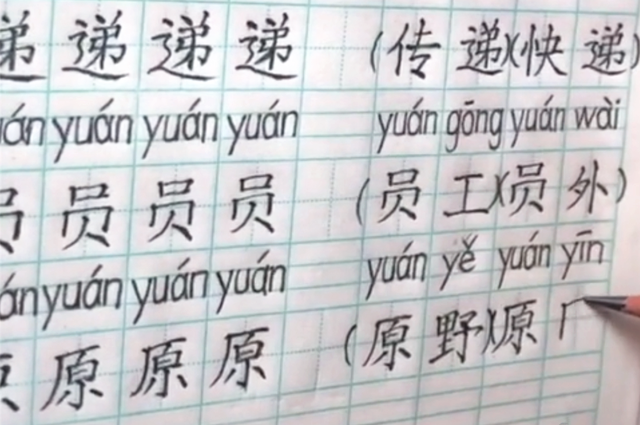 递 递 递 递 (传 递)(快 递)
yuán yuán yuán yuán yuán gōng yuán wài
员 员 员 员 (员 工)(员 外)
yuán yuán yuán yuán yě yuán yīn
原 原 原 (原 野)(原